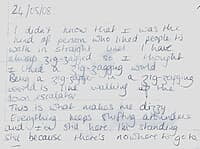 24/05/08
I didn't know that I was the
kind of person who liked people to
walk in straight lines. I have
always zig-zagged so I thought
I liked a zig-zagging world
Being a zig-zagger in a zig-zagging
world is like walking up the
down escalator.
This is what makes me dizzy.
Everything keeps shifting
and I am still here. I'm standing
still because there's nowhere to go to